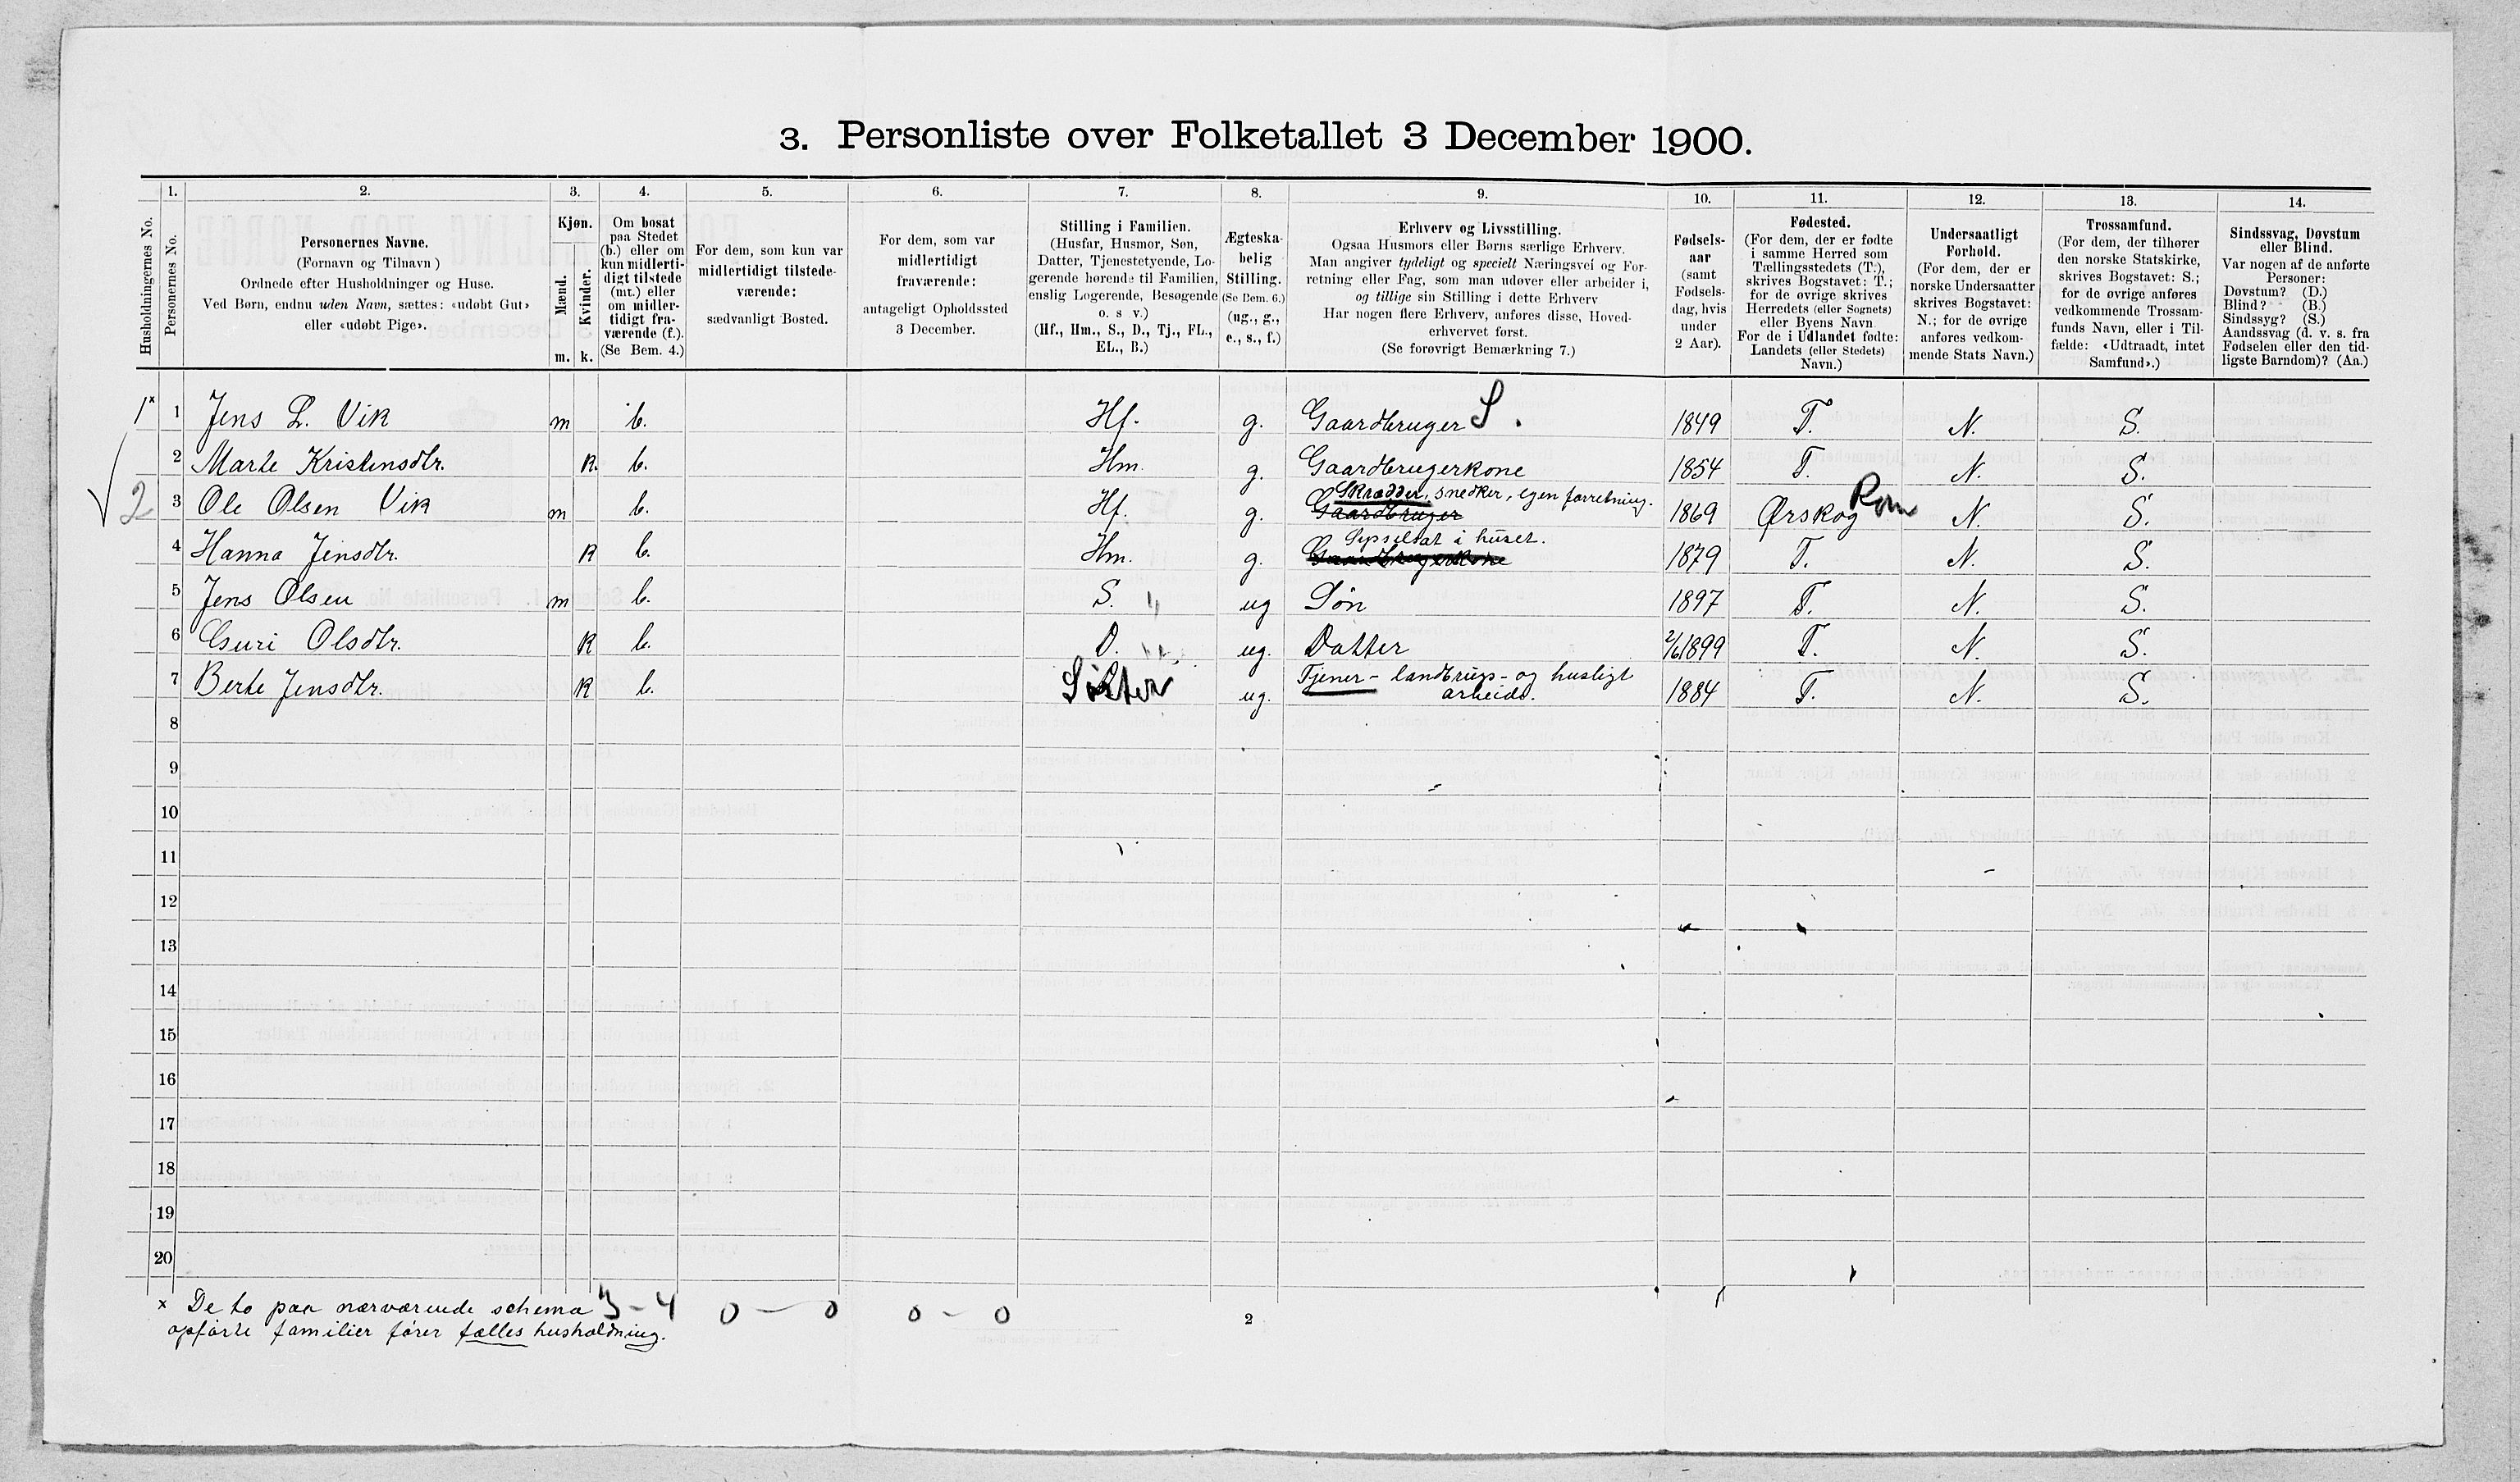 3. Personliste over Folketallet 3 December 1900.
1. 2. 3. 4. 5. 6. 7. 8. 9. 10. 11. 12. 13. 14.
Husholdningernes No.
Personernes No.
Personernes Navne.
(Fornavn og Tilnavn)
Ordnede efter Husholdninger og Huse.
Ved Børn, endnu uden Navn, sættes: «udøbt Gut»
eller «udøbt Pige».
Kjøn.
Mænd.
Kvinder.
m. k.
Om bosat
paa Stedet
(b.) eller om
kun midlerti-
digt tilstede
(mt.) eller
om midler-
tidigt fra-
værende (f.).
(Se Bem. 4.)
For dem, som kun var
midlertidigt tilstede-
værende:
sædvanligt Bosted.
For dem, som var
midlertidigt
fraværende:
antageligt Opholdssted
3 December.
Stilling i Familien.
(Husfar, Husmor, Søn,
Datter, Tjenestetyende, Lo-
gerende hørende til Familien,
enslig Logerende, Besøgende
o. s v.)
(Hf., Hm., S., D., Tj., FL.,
EL., B.)
Ægteska-
belig
Stilling.
(Se Bem. 6.)
(ug., g.,
e., s., f.)
Erhverv og Livsstilling.
Ogsaa Husmors eller Børns særlige Erhverv.
Man angiver tydeligt og specielt Næringsvei og For-
retning eller Fag, som man udøver eller arbeider i,
og tillige sin Stilling i dette Erhverv
Har nogen flere Erhverv, anføres disse, Hoved-
erhvervet først.
(Se forøvrigt Bemærkning 7.)
Fødsels-
aar
(samt
Fødsels-
dag, hvis
under
2 Aar).
Fødested.
(For dem, der er fødte
i samme Herred som
Tællingsstedets (T.),
skrives Bogstavet: T.;
for de øvrige skrives
Herredets (eller Sognets)
eller Byens Navn
For de i Udlandet fødte:
Landets (eller Stedets)
Navn.)
Undersaatligt
Forhold.
(For dem, der er
norske Undersaatter
skrives Bogstavet:
N.; for de øvrige
anføres vedkom-
mende Stats Navn.)
Trossamfund.
(For dem, der tilhører
den norske Statskirke,
skrives Bogstavet: S.;
for de øvrige anføres
vedkommende Trossam-
funds Navn, eller i Til-
fælde: «Udtraadt, intet
Samfund».)
Sindssvag, Døvstum
eller Blind.
Var nogen af de anførte
Personer:
Døvstum? (D.)
Blind? (B.)
Sindssyg? (S.)
Aandssvag (d. v. s. fra
Fødselen eller den tid-
ligste Barndom)? (Aa.)
1x 1 Jens L. Vik m b. Hf. g. Gaardbruger S. 1849 T. N. S.
2 Marte Kristensdtr. k. b. Hm. g. Gaardbrugerkone 1854 T. N. S.
Skrædder, snedker, egen forretning.
2 3 Ole Olsen Vik m b. Hf. g. Gaardbruger 1869 Ørskog Rom N. S.
Sysselsat i huset.
4 Hanna Jensdtr. k b. Hm. g. Gaardbrugerkone 1879 T. N. S.
5 Jens Olsen m b. S. ug Søn 1897 T. N. S.
6 Guri Olsdtr. k b. D. ug. Datter 2/6 1899 T. N. S.
7 Berte Jensdtr. k b. Søster ug. Tjener - landbrugs- og husligt
arbeide. 1884 T. N. S.
8
9
10
11
12
13
14
15
16
17
18
19
20
x De to paa nærværende schema 3-4 0-0 0-0
opførte familier fører fælles husholdning.
2